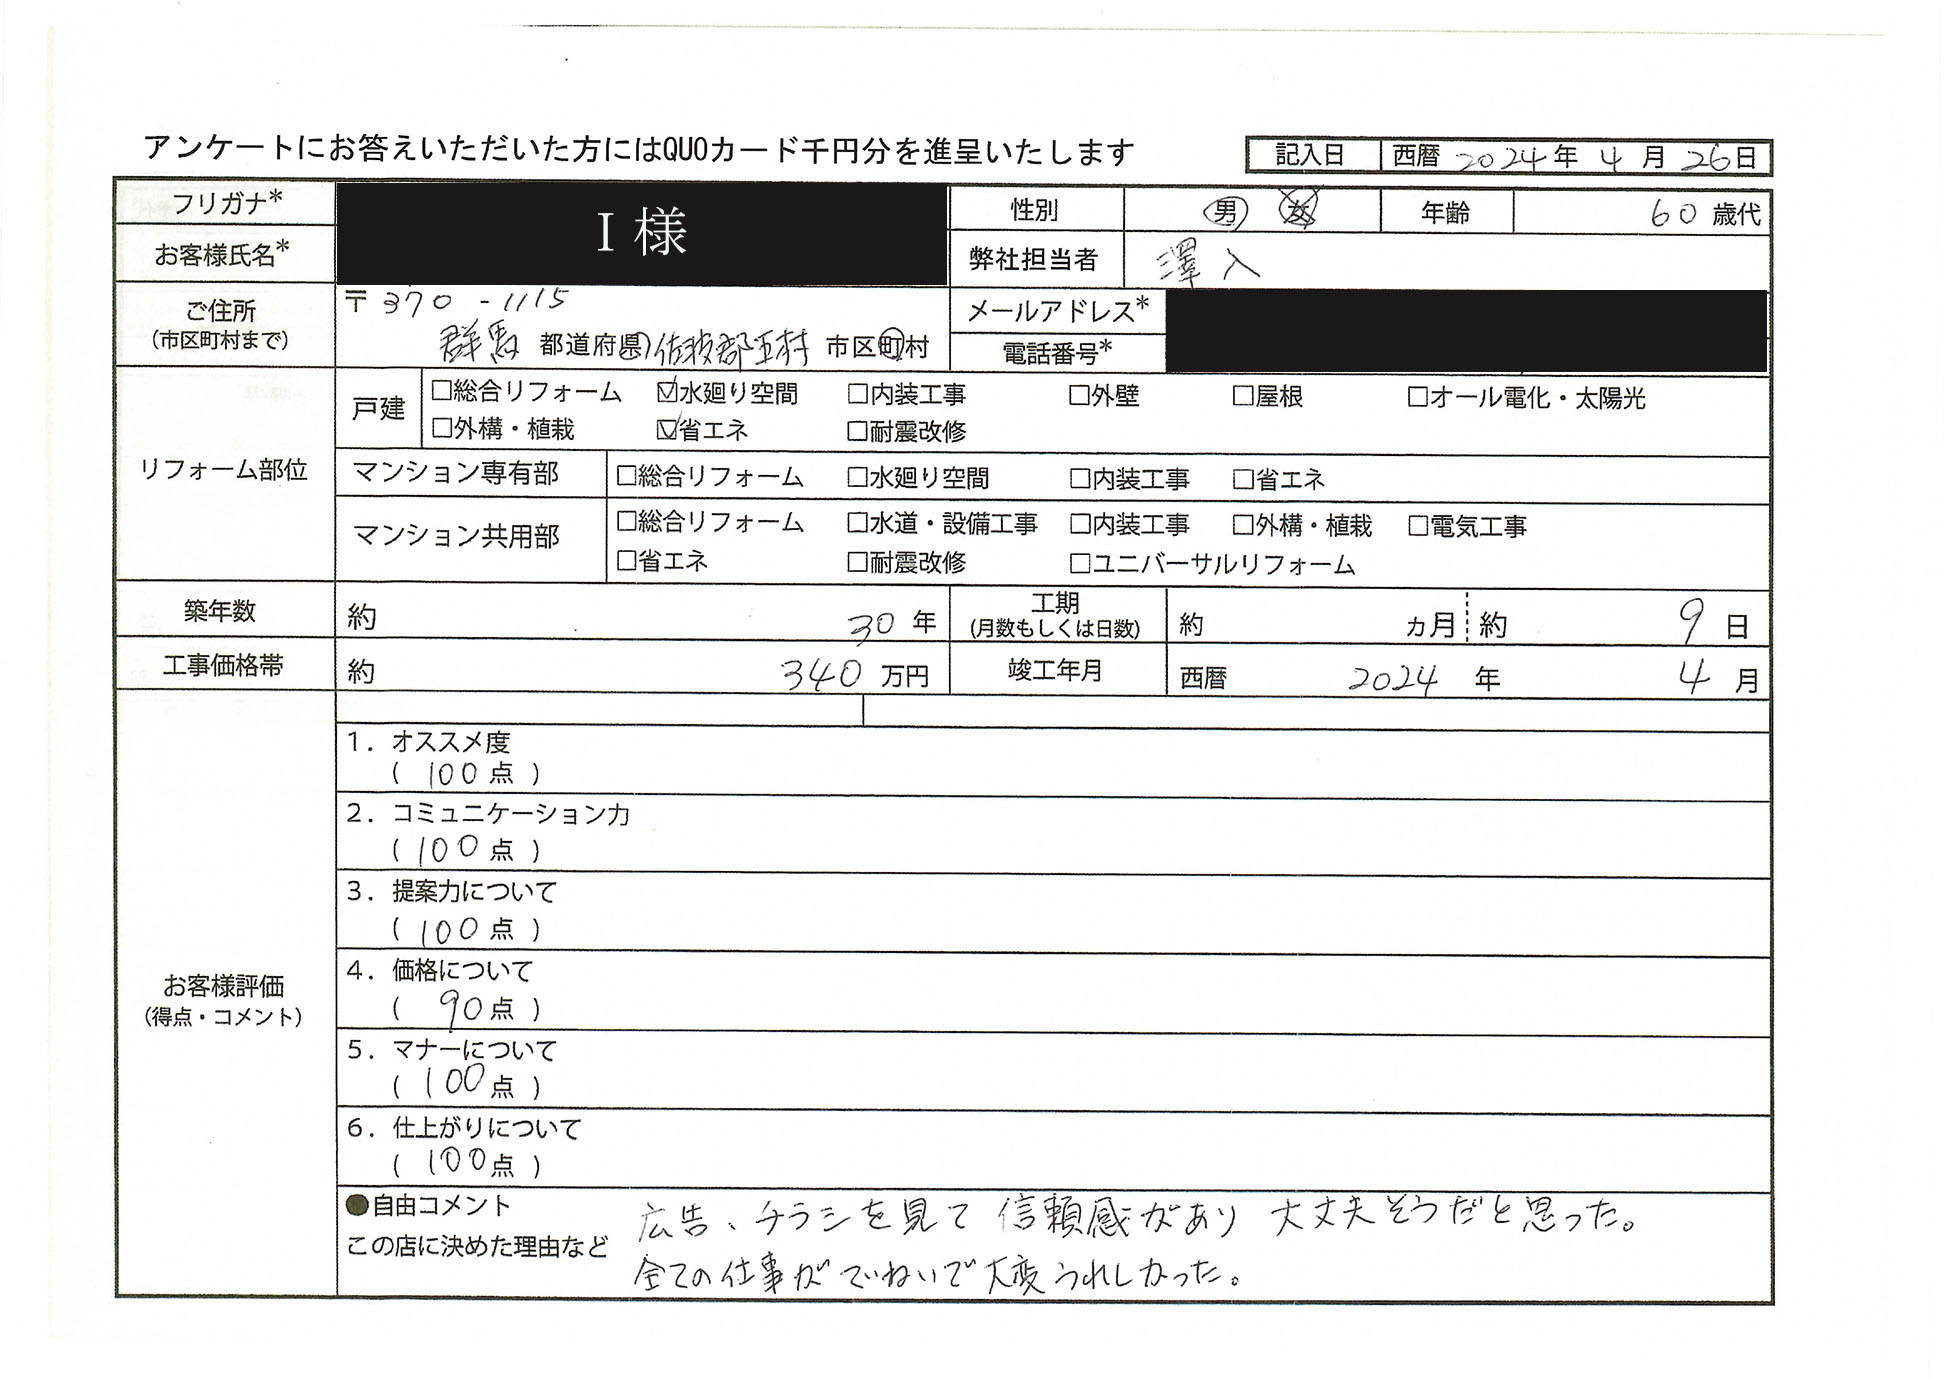 アンケートにお答えいただいた方にはQUOカード千円分を進呈いたします
記入日 西暦 2024 年 4 月 26 日
フリガナ*
I 様
性別 男 女 年齢 60 歳代
お客様氏名*
弊社担当者 澤入
ご住所
(市区町村まで)
〒 370 - 1115
群馬 都道府県 佐波郡玉村 市区町村
メールアドレス*
電話番号*
リフォーム部位
戸建
□総合リフォーム ☑水廻り空間 □内装工事 □外壁 □屋根 □オール電化・太陽光
□外構・植栽 ☑省エネ □耐震改修
マンション専有部 □総合リフォーム □水廻り空間 □内装工事 □省エネ
マンション共用部
□総合リフォーム □水道・設備工事 □内装工事 □外構・植栽 □電気工事
□省エネ □耐震改修 □ユニバーサルリフォーム
築年数 約 30 年
工期
(月数もしくは日数)
約 カ月 約 9 日
工事価格帯 約 340 万円 竣工年月 西暦 2024 年 4 月
お客様評価
(得点・コメント)
1. オススメ度
( 100 点 )
2. コミュニケーション力
( 100 点 )
3. 提案力について
( 100 点 )
4. 価格について
( 90 点 )
5. マナーについて
( 100 点 )
6. 仕上がりについて
( 100 点 )
●自由コメント
この店に決めた理由など
広告、チラシを見て 信頼感があり 大丈夫そうだと思った。
全ての仕事がていねいで大変うれしかった。